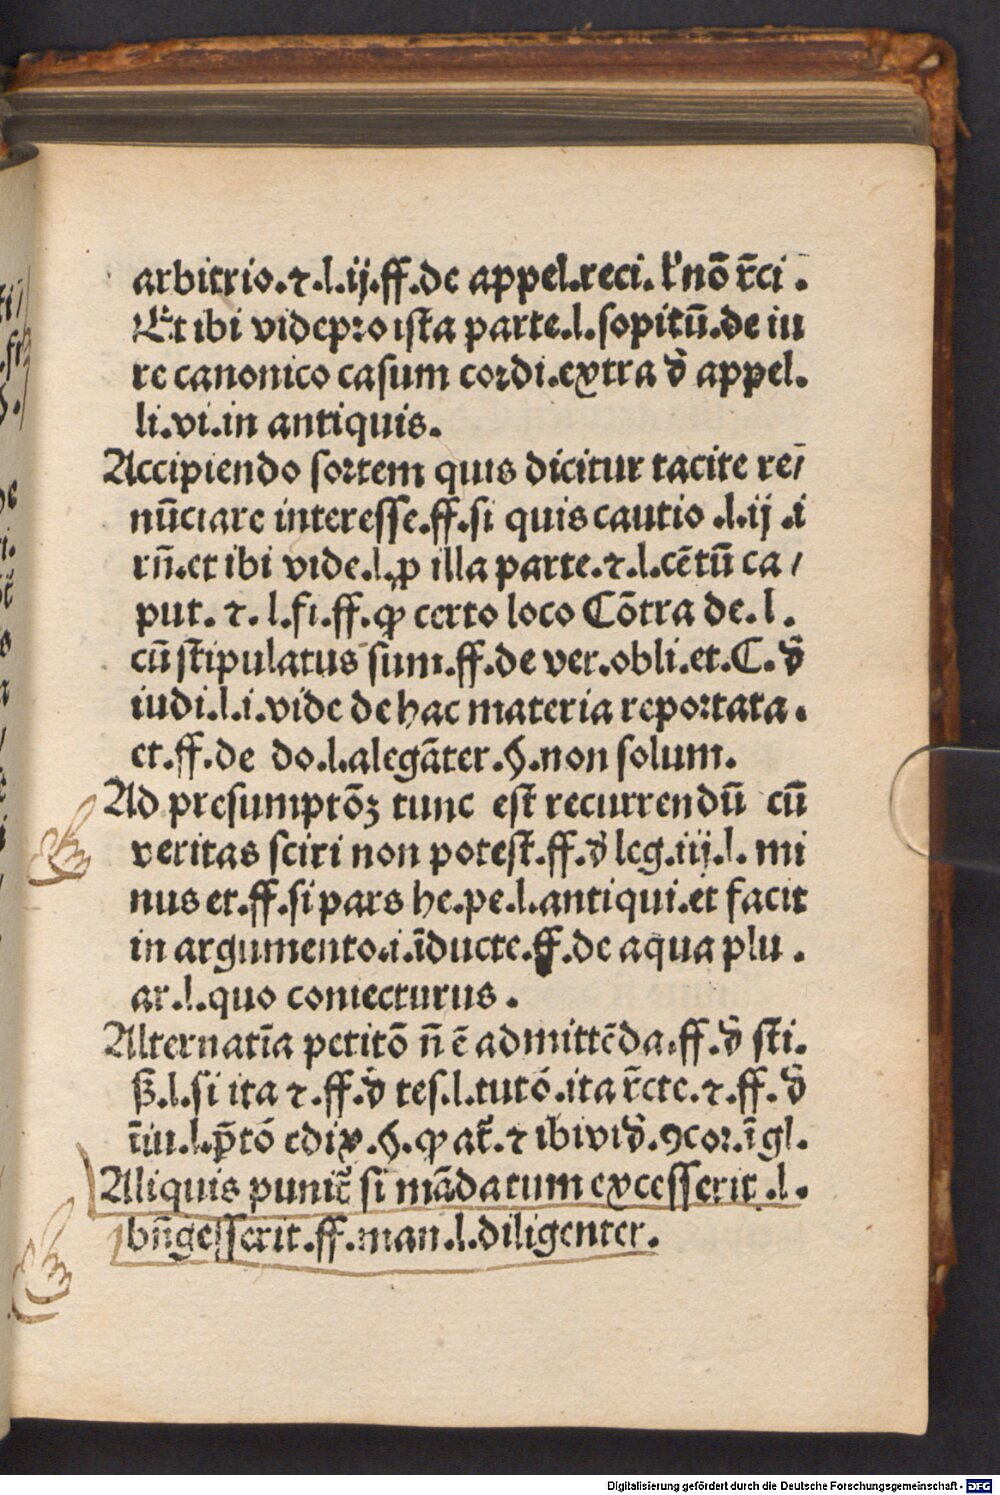 arbitrio.⁊.l.ij.ff.de appel.reci. ł nō r̄ci .
Et ibi videpro ista parte.l.sopitū.de iu
re canonico casum cordi.extra d̄ appel.
li.vi.in antiquis.
Accipiendo sortem quis dicitur tacite re/
nūciare interesse.ff.si quis cautio .l.ij .i
rn̄.et ibi vide.l.p illa parte.⁊.l.cētū ca /
put. ⁊. l.fi.ff.ꝙ certo loco Cōtra de.l.
cū stipulatus sum.ff.de ver.obli.et.C.d̄
iudi.l.i.vide de hac materia reportata.
et.ff.de do.l.alegāter.§.non solum.
Ad presumptōꝫ tunc est recurrendū cū
veritas sciri non potest.ff.d̄ leg.iij.l. mi
nus et.ff.si pars he.pe.l.antiqui.et facit
in argumento.i.īducte.ff.de aqua plu .
ar.l.quo coniecturus .
Alternatīa petitō n̄ ē admittēda.ff.d̄ sti.
ẞ.l.si ita ⁊.ff.d̄ tes.l.tutō.ita r̄cte.⁊.ff. d̄
t̄iu.l.p̄tō edix.§.ꝙ at̄. ⁊ ibi vid̄.ꝯcor.ī gl.
Aliquis punit᷑ si mādatum excesserit .l.
bn̄gesserit.ff.man.l.diligenter.
Digitalisierung gefördert durch die Deutsche Forschungsgemeinschaft - DFG